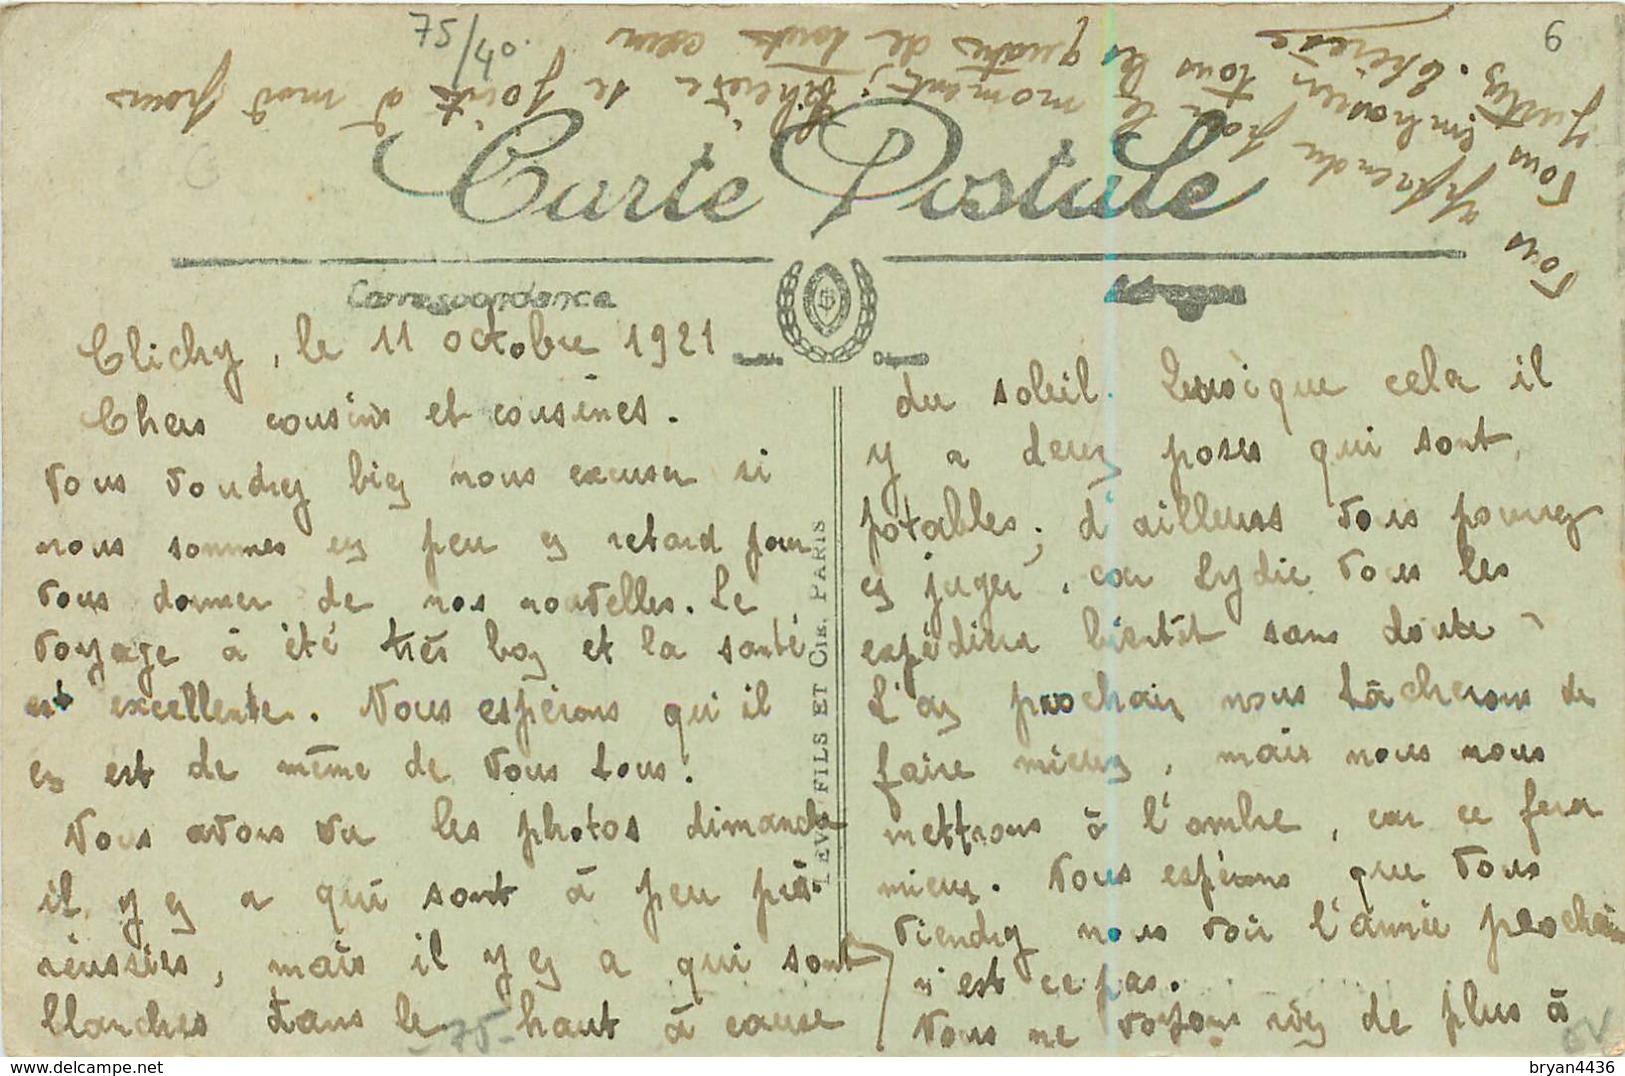 75/40.
6
Carte Postale
Correspondance
Adresse
Clichy, le 11 octobre 1921
Chers cousins et cousines.
Vous voudrez bien nous excuser si
nous sommes en peu en retard pour
vous donner de nos nouvelles. Le
voyage à été très bon et la santé
est excellente. Nous espérons qu'il
en est de même de vous tous.
Nous avons vu les photos dimanche
il y en a qui sont à peu près
réussies, mais il y en a qui sont
blanches dans le haut à cause
-75-
LEVY FILS ET CIE, PARIS
du soleil. Lorsque cela il
y a deux poses qui sont
potables; d'ailleurs vous pourrez
en juger, car Lydie vous les
expédiera bientôt sans doute
L'an prochain nous tâcherons de
faire mieux, mais nous nous
mettrons à l'ombre, car ce fera
mieux. Nous espérons que vous
viendrez nous voir l'année prochain
n'est ce pas.
Nous ne voyons rien de plus à
vous apprendre par le moment; Thérèse se joint à moi pour
vous embrasser tous les quatre de tout cœur
Thérèse
bryan4436